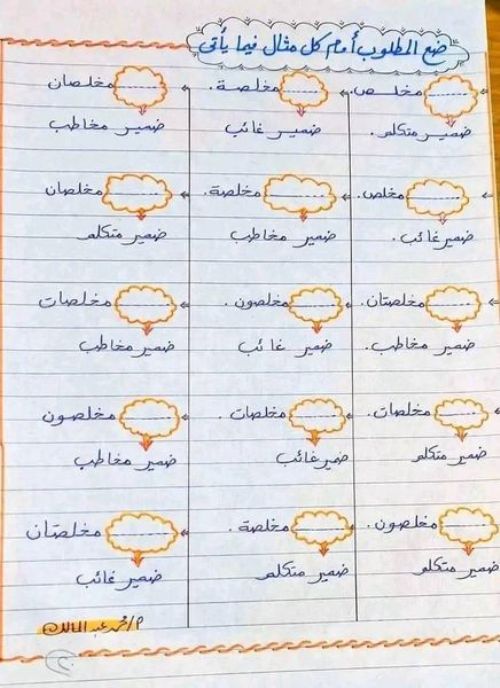 ضع المطلوب أمام كل مثال فيما يأتى
مخلص. مخلصة. مخلصان
ضمير متكلم. ضمير غائب ضمير مخاطب
مخلص. مخلصة. مخلصان
ضمير غائب. ضمير مخاطب ضمير متكلم
مخلصتان. مخلصون. مخلصات
ضمير مخاطب. ضمير غائب ضمير مخاطب
مخلصات. مخلصات. مخلصون
ضمير متكلم ضمير غائب ضمير مخاطب
مخلصون. مخلصة. مخلصتان
ضمير متكلم ضمير متكلم ضمير غائب
م/محمد عبد المالك